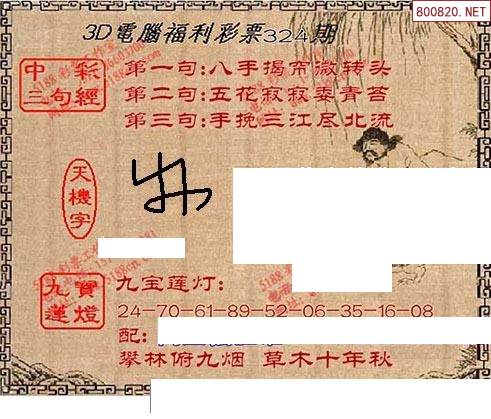 800820.NET
3D電腦福利彩票324期
中彩三句經
第一句:八手揭帘微转头
第二句:五花寂寂委青苔
第三句:手挽三江尽北流
天機字
九寶蓮燈
九宝莲灯:
24-70-61-89-52-06-35-16-08
配:
攀林俯九烟 草木十年秋